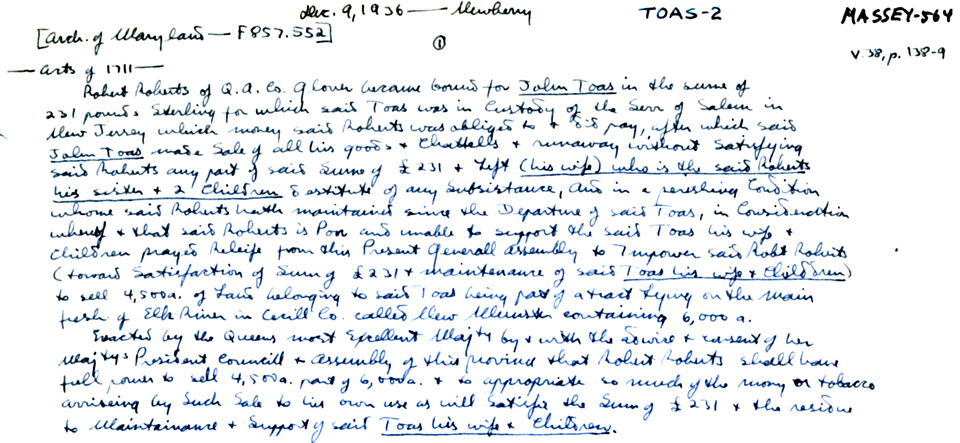 Dec. 9, 1936 — Newberry
TOAS-2
MASSEY-564
[Arch. of Maryland — F857.552]
①
V. 38, p. 138-9
— Acts of 1711 —
Robert Roberts of Q. A. Co. Glover became bound for John Toas in the sume of
231 pounds Sterling for which said Toas was in Custody of the Serr of Salem in
New Jersey which money said Roberts was obliged to & did pay, after which said
John Toas made Sale of all his goods & Chattells & runaway without Satisfying
said Roberts any part of said Sume of £231 & Left (his wife) who is the said Roberts
his sister & 2 Children destitute of any Subsistance, and in a perishing Condition
whome said Roberts hath maintained since the Departure of said Toas, in Consideration
whereof & that said Roberts is Poor and unable to support the said Toas his wife &
Children prayed Releife from this Present Generall assembly to Impower said Robt Roberts
(toward Satisfaction of Sum of £231 & maintenance of said Toas his wife & Children)
to sell 4,500a. of Land belonging to said Toas being part of a tract Lying on the main
fresh of Elk River in Cecill Co. called New Munster containing 6,000 a.
Enacted by the Queens most Excellent Majty by & with the advice & consent of her
Majtys President Councill & Assembly of this province that Robert Roberts shall have
full power to sell 4,500a. part of 6,000a. & to appropriate so much of the mony or tobacco
arriseing by Such Sale to his own use as will Satisfie the Sum of £231 & the residue
to Maintainance & Support of said Toas his wife & Children.